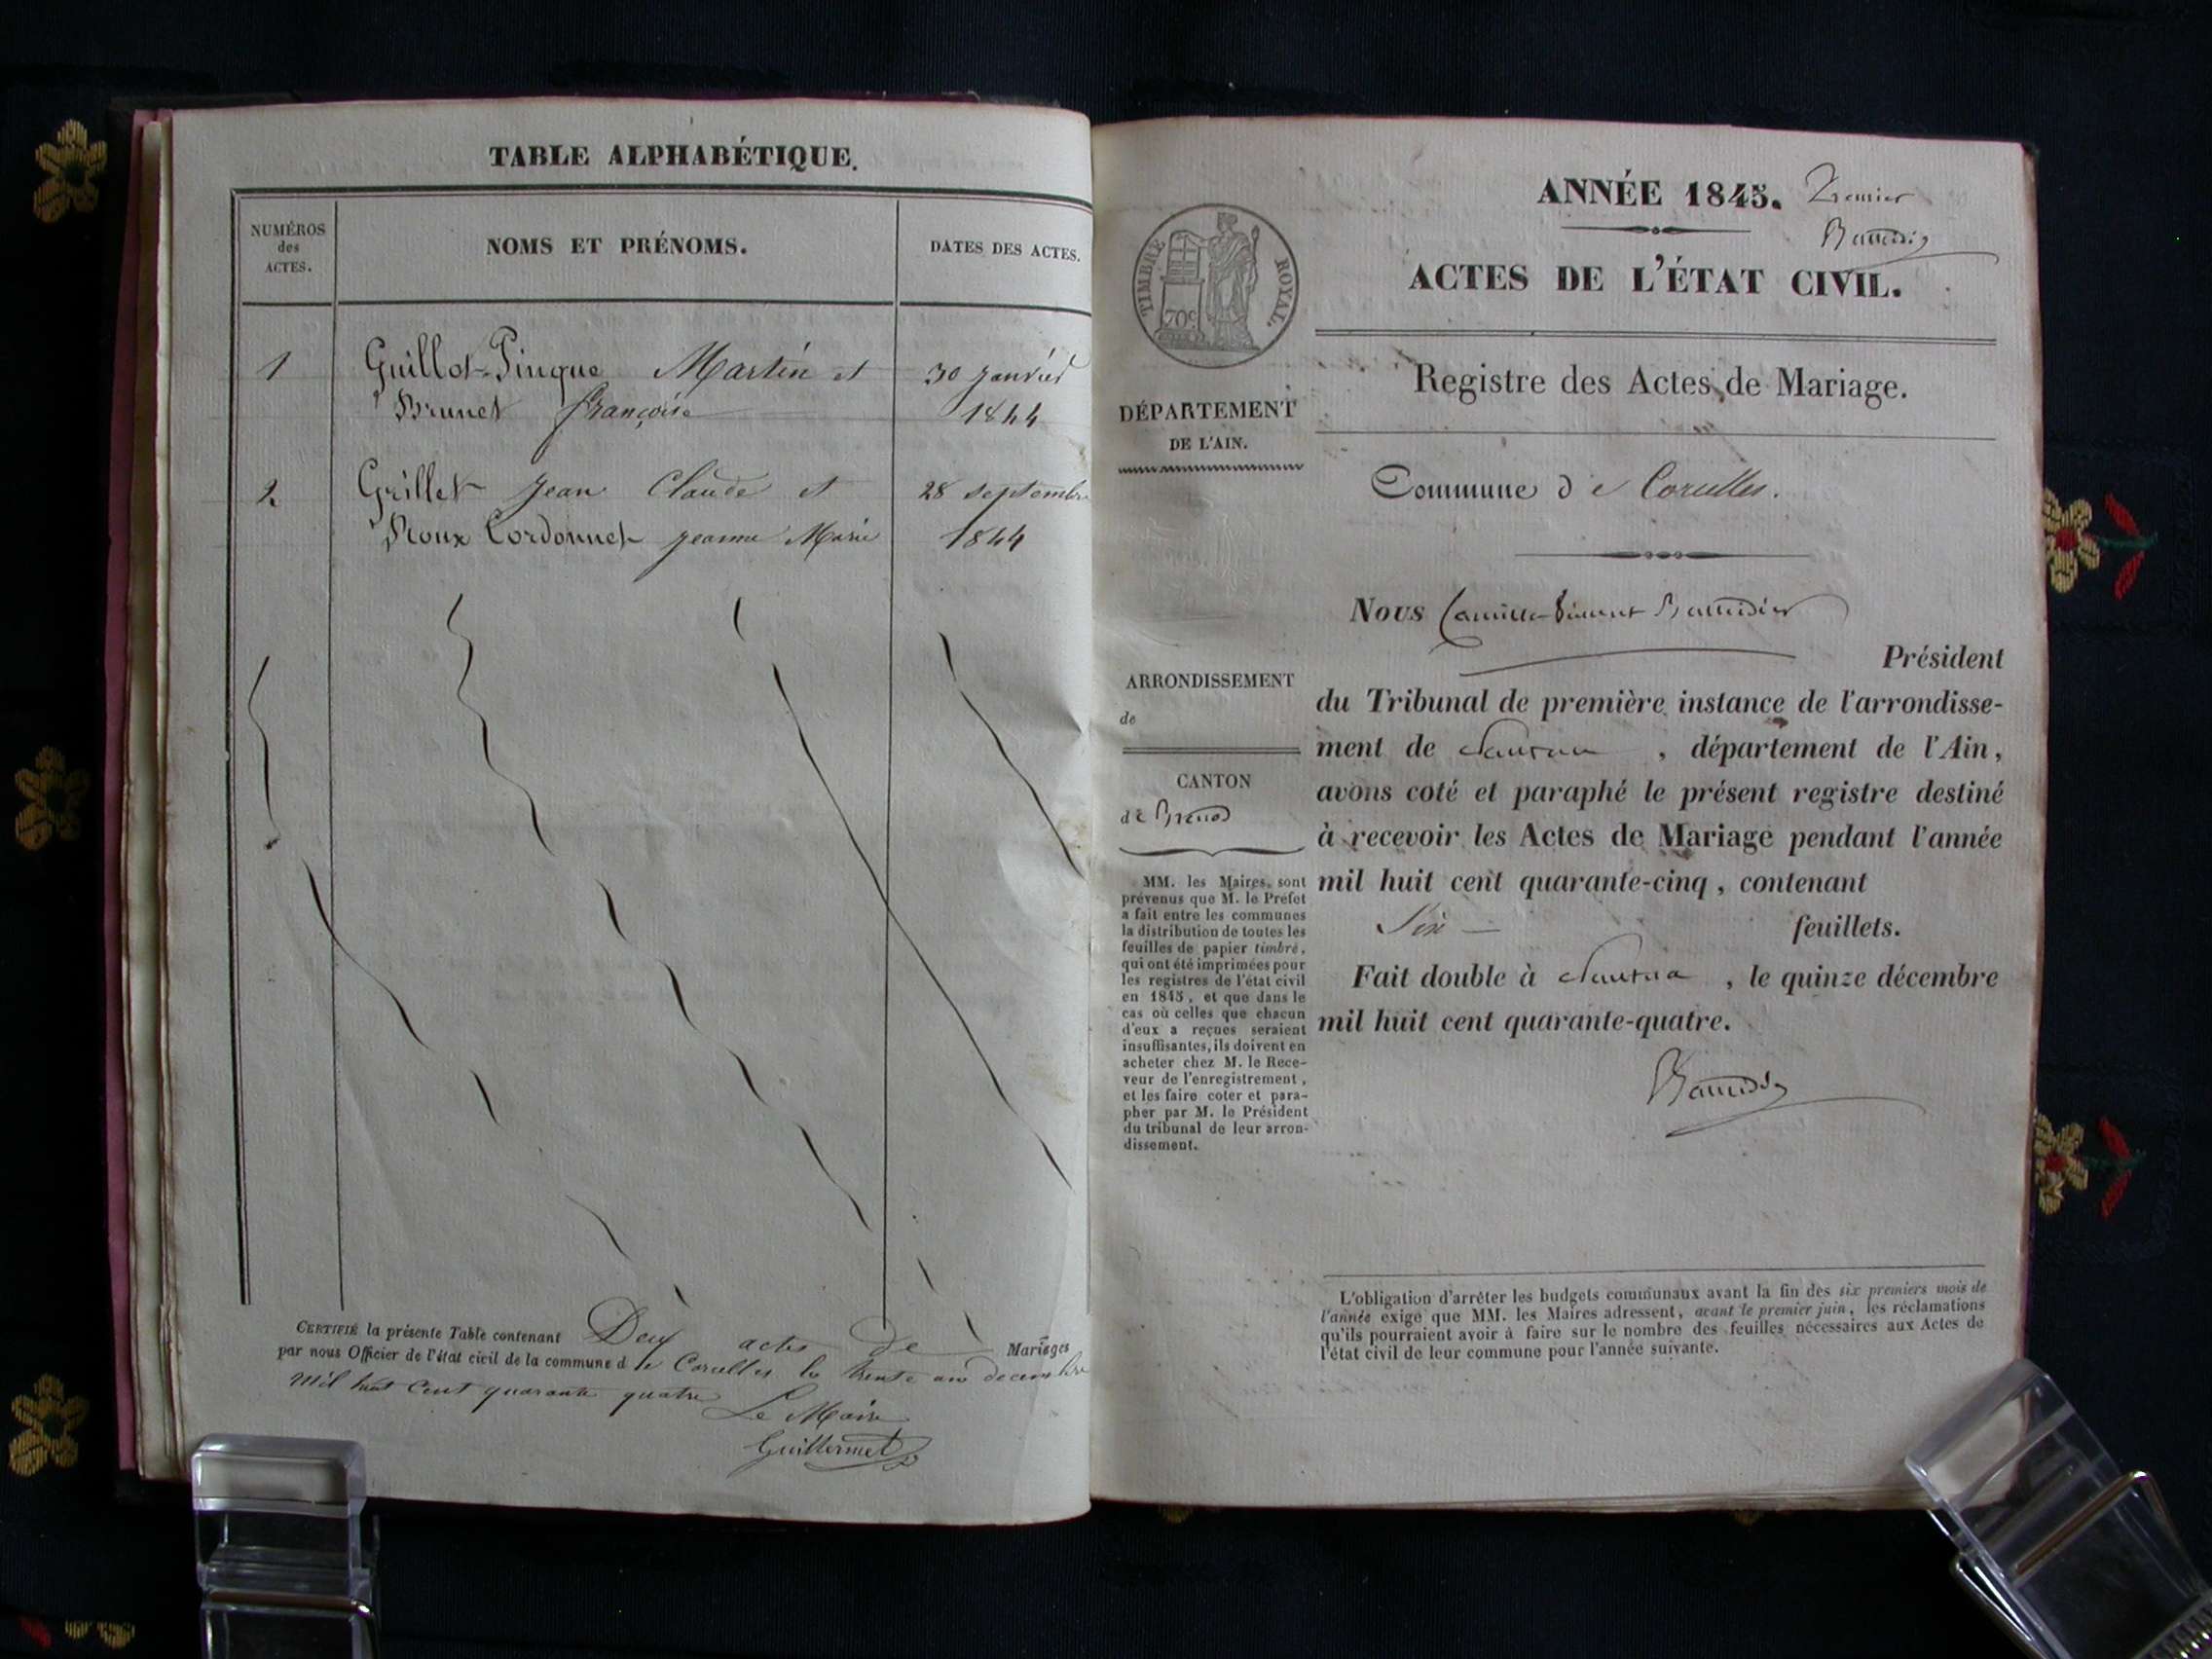 TABLE ALPHABÉTIQUE.
NUMÉROS
des
ACTES.
NOMS ET PRÉNOMS.
DATES DES ACTES.
1 Guillot-Pingue Martin et 30 janvier
Brunet françoise 1844
2 Grillet jean Claude et 28 septembre
Roux Cordonnet jeanne Marie 1844
CERTIFIÉ la présente Table contenant Deux actes de Mariages
par nous Officier de l'état civil de la commune de Corcelles le trente un decembre
Mil huit Cent quarante quatre
Le Maire
Guillermet
ANNÉE 1845. Premier
ACTES DE L'ÉTAT CIVIL.
TIMBRE ROYAL.
70c
Registre des Actes de Mariage.
DÉPARTEMENT
DE L'AIN.
Commune de Corcelles.
ARRONDISSEMENT
de
CANTON
de Brenod
MM. les Maires sont
prévenus que M. le Préfet
a fait entre les communes
la distribution de toutes les
feuilles de papier timbré,
qui ont été imprimées pour
les registres de l'état civil
en 1845, et que dans le
cas où celles que chacun
d'eux a reçues seraient
insuffisantes, ils doivent en
acheter chez M. le Rece-
veur de l'enregistrement,
et les faire coter et para-
pher par M. le Président
du tribunal de leur arron-
dissement.
Nous Camille
Président
du Tribunal de première instance de l'arrondisse-
ment de Nantua , département de l'Ain,
avons coté et paraphé le présent registre destiné
à recevoir les Actes de Mariage pendant l'année
mil huit cent quarante-cinq, contenant
Six feuillets.
Fait double à Nantua , le quinze décembre
mil huit cent quarante-quatre.
L'obligation d'arrêter les budgets communaux avant la fin des six premiers mois de
l'année exige que MM. les Maires adressent, avant le premier juin, les réclamations
qu'ils pourraient avoir à faire sur le nombre des feuilles nécessaires aux Actes de
l'état civil de leur commune pour l'année suivante.